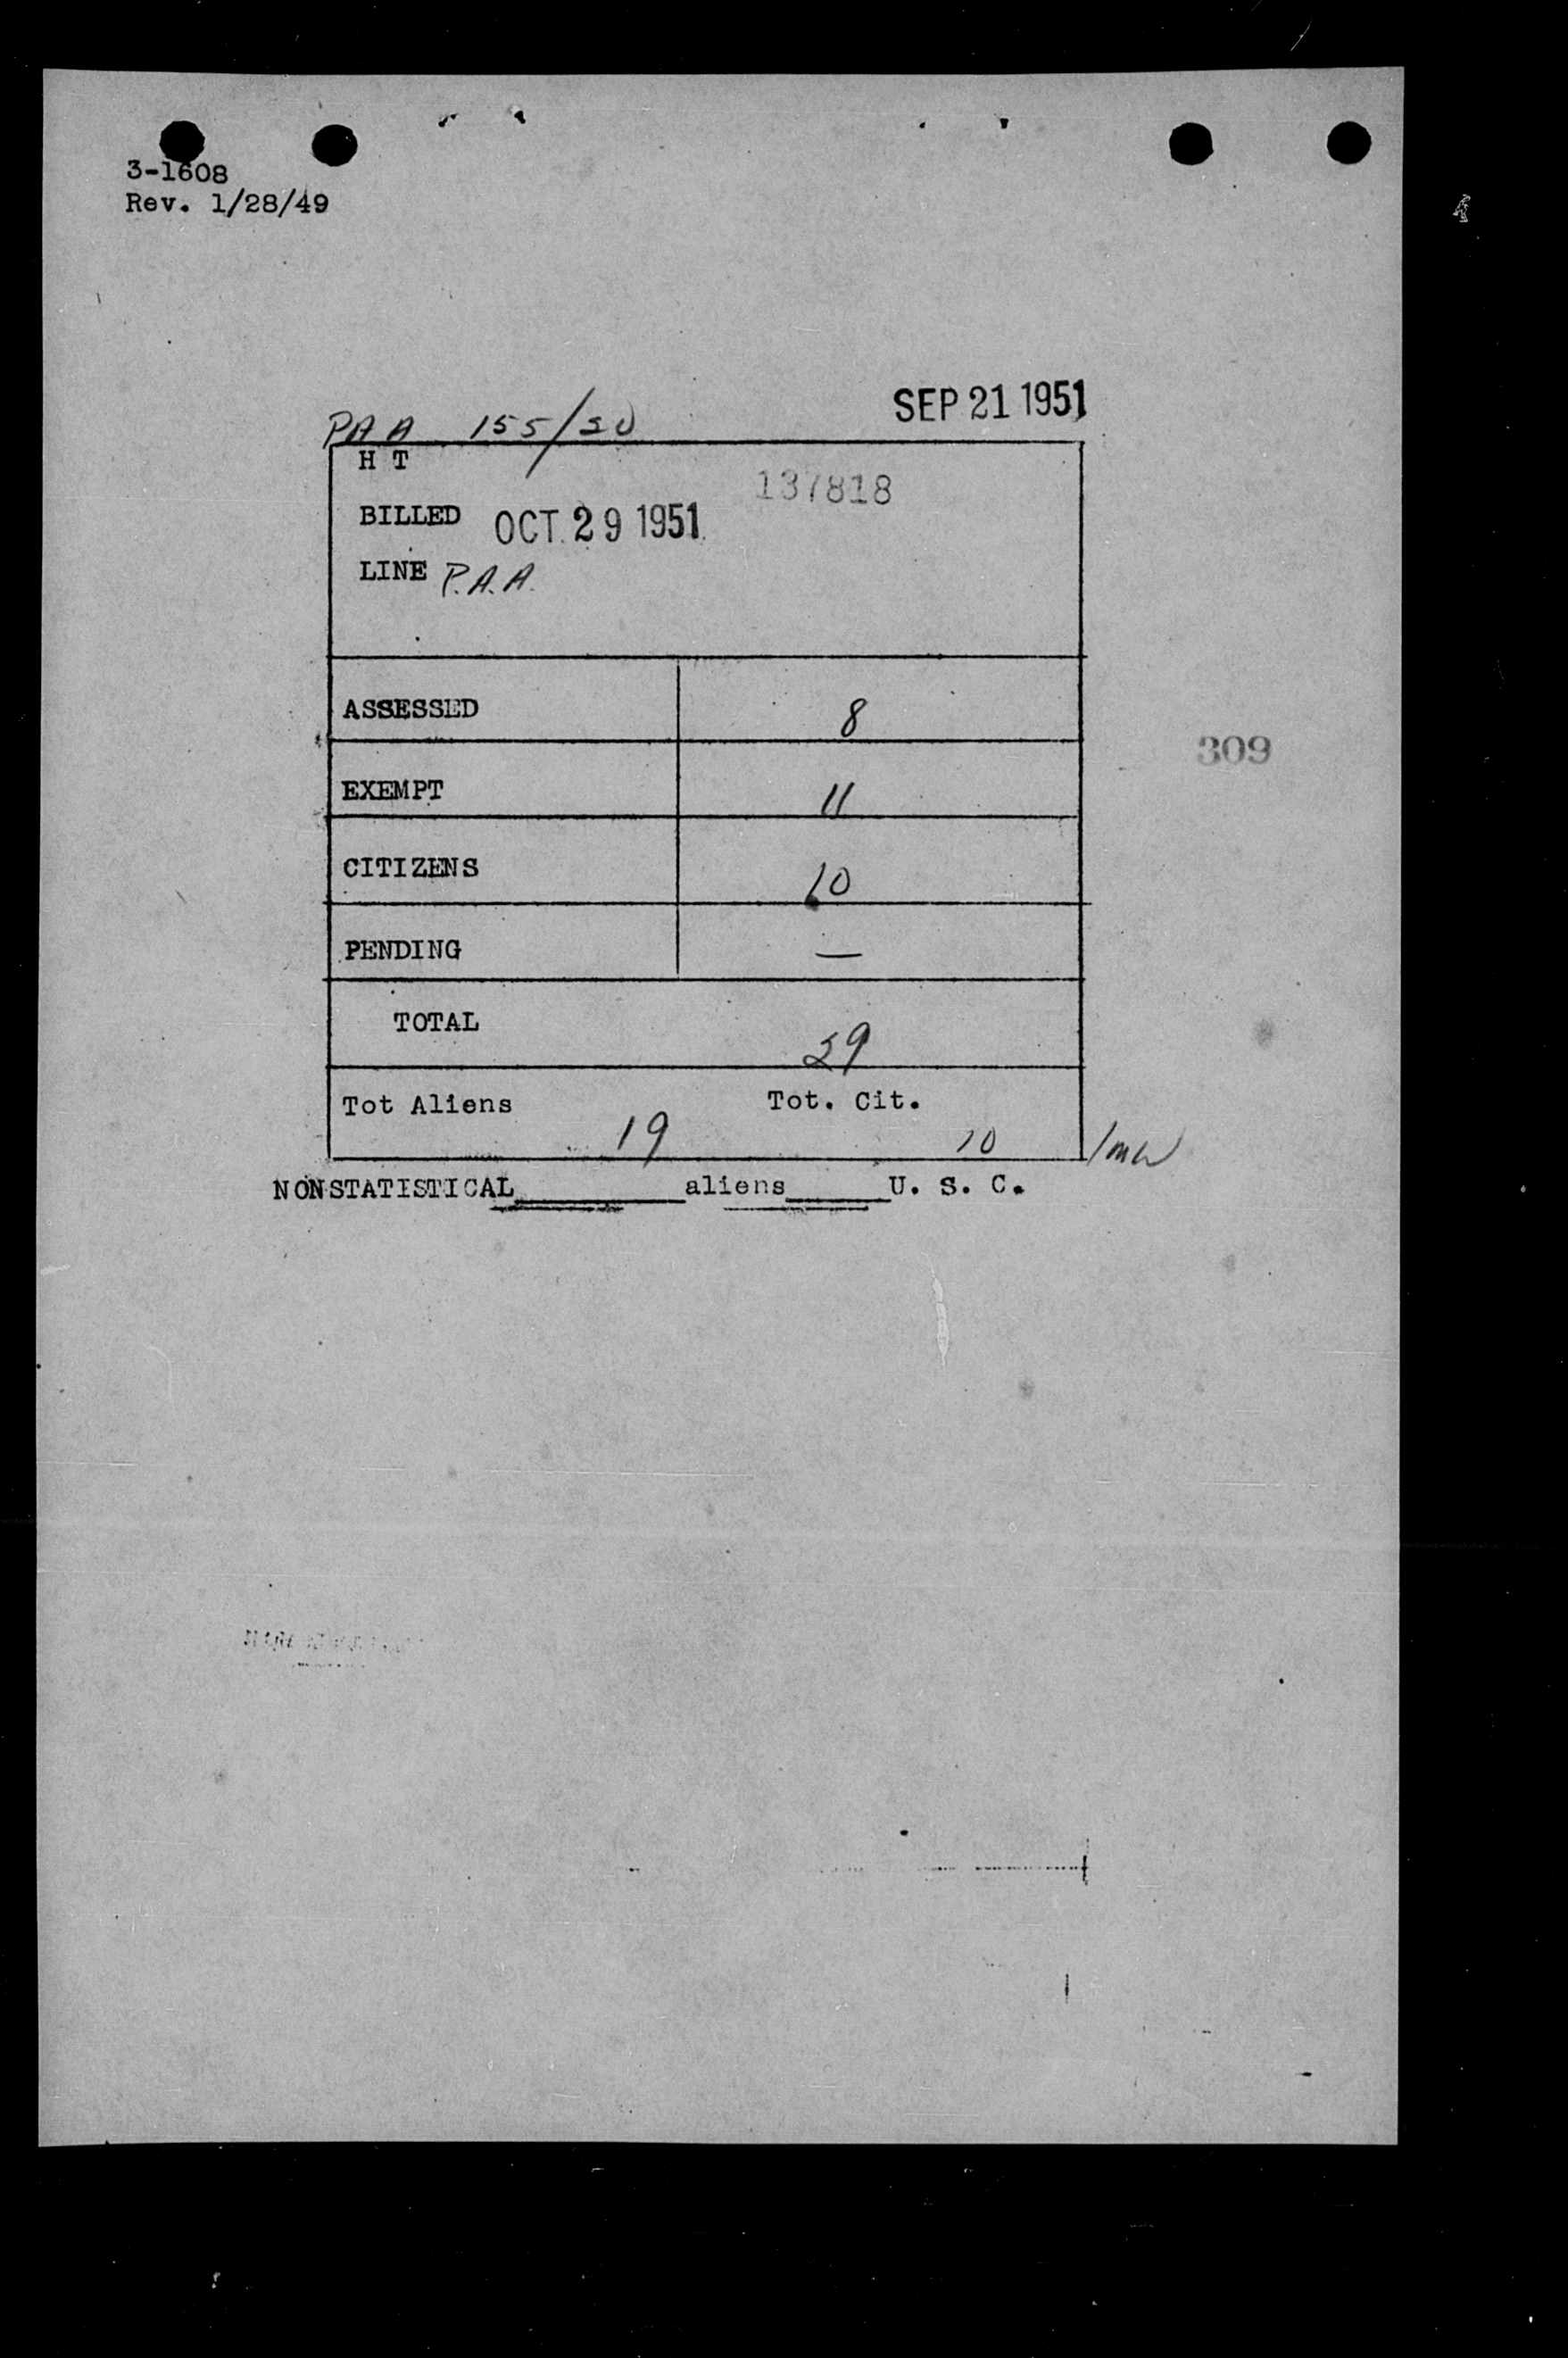 3-1608
Rev. 1/28/49
SEP 21 1951
PAA 155/20
H T
137818
BILLED OCT. 29 1951
LINE P.A.A.
ASSESSED 8
309
EXEMPT 11
CITIZENS 10
PENDING —
TOTAL 29
Tot Aliens 19 Tot. Cit. 10
NONSTATISTICAL________aliens_____U. S. C.